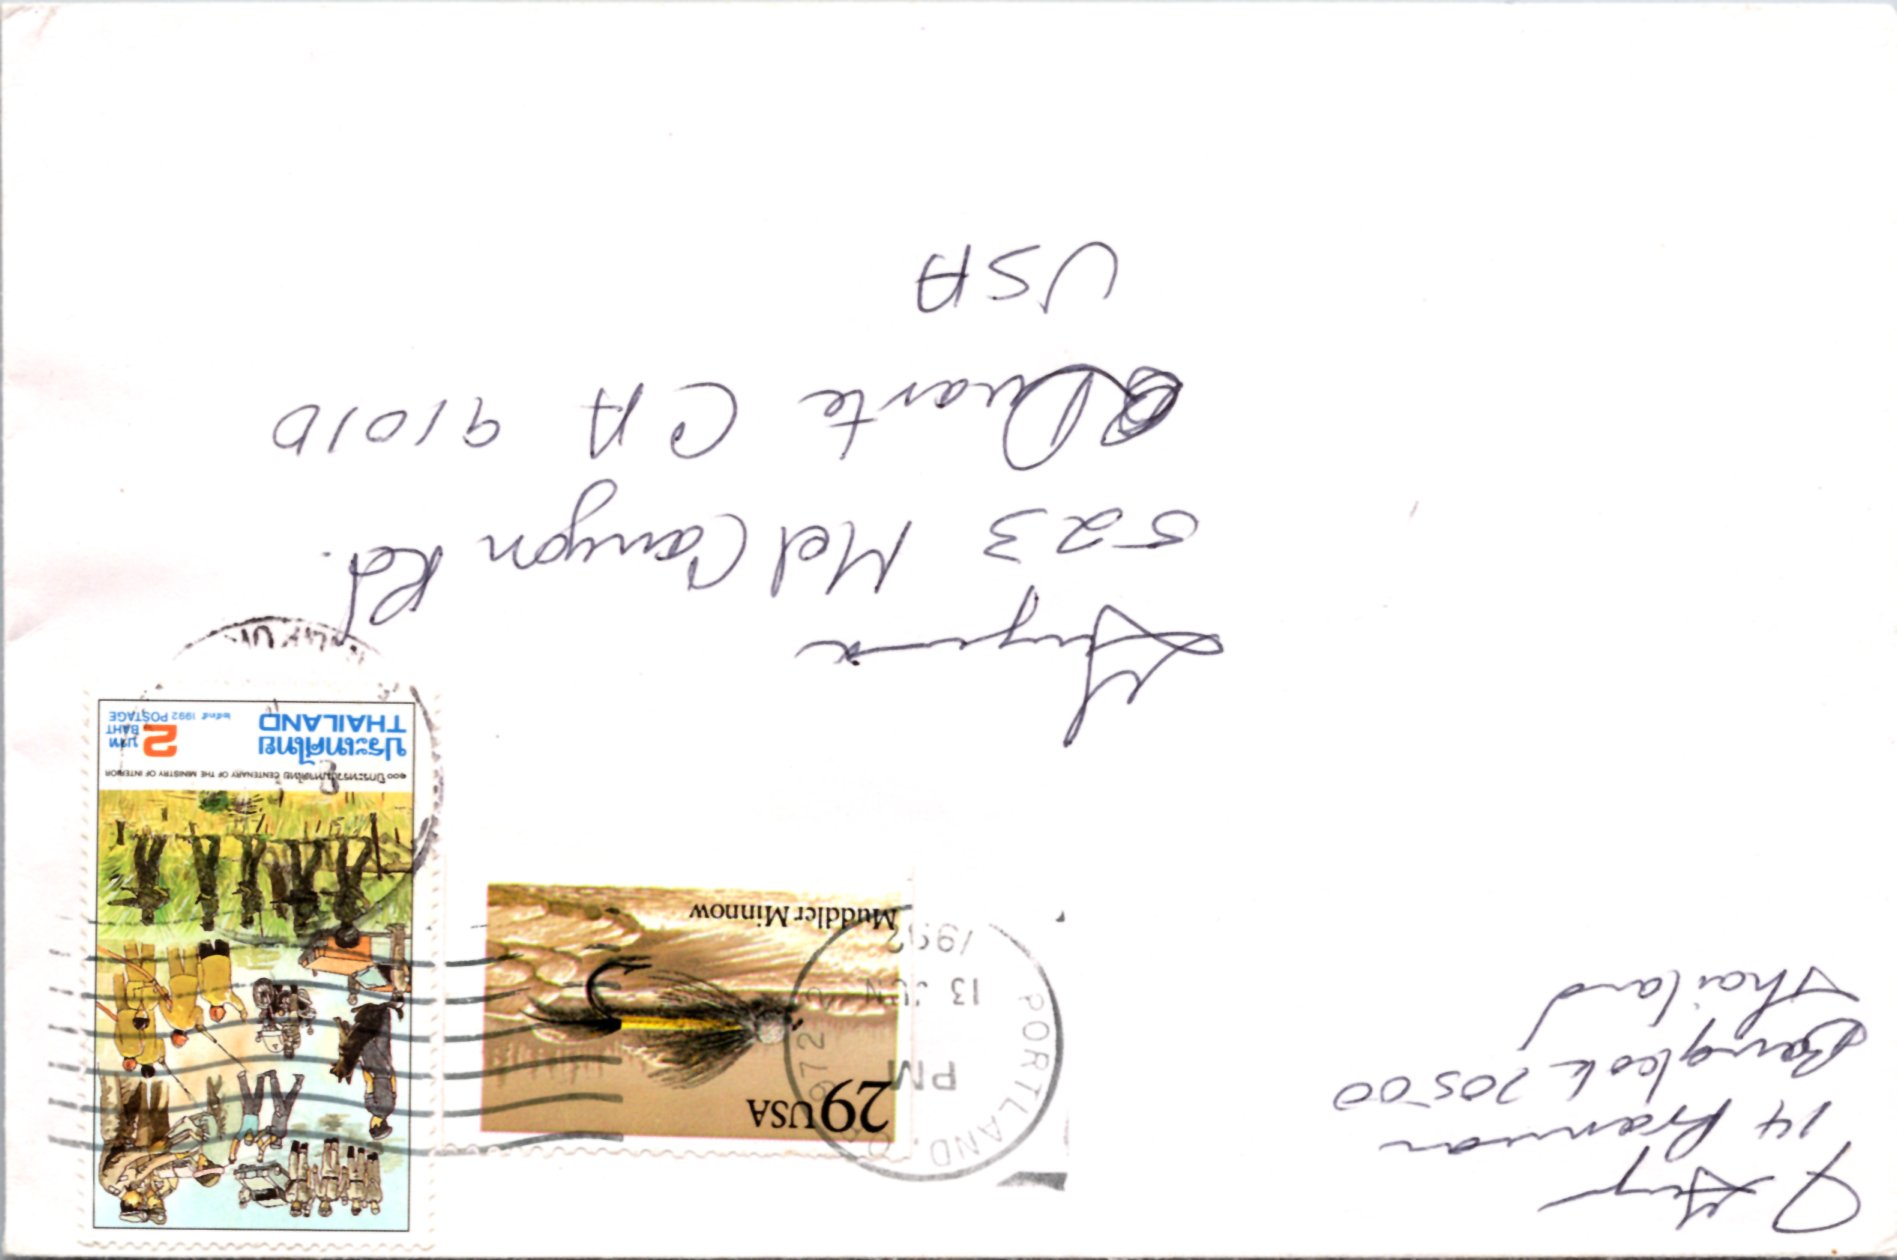 14
Bangkok 20500
Thailand
29 USA
Muddler Minnow
PORTLAND,
PM
13 JUN
1992
972
๑๐๐ ปีกระทรวงมหาดไทย CENTENARY OF THE MINISTRY OF INTERIOR
ประเทศไทย
THAILAND
2 บาท
BAHT
๒๕๓๕ 1992 POSTAGE
523 Mel Canyon Rd.
Duarte CA 91010
USA